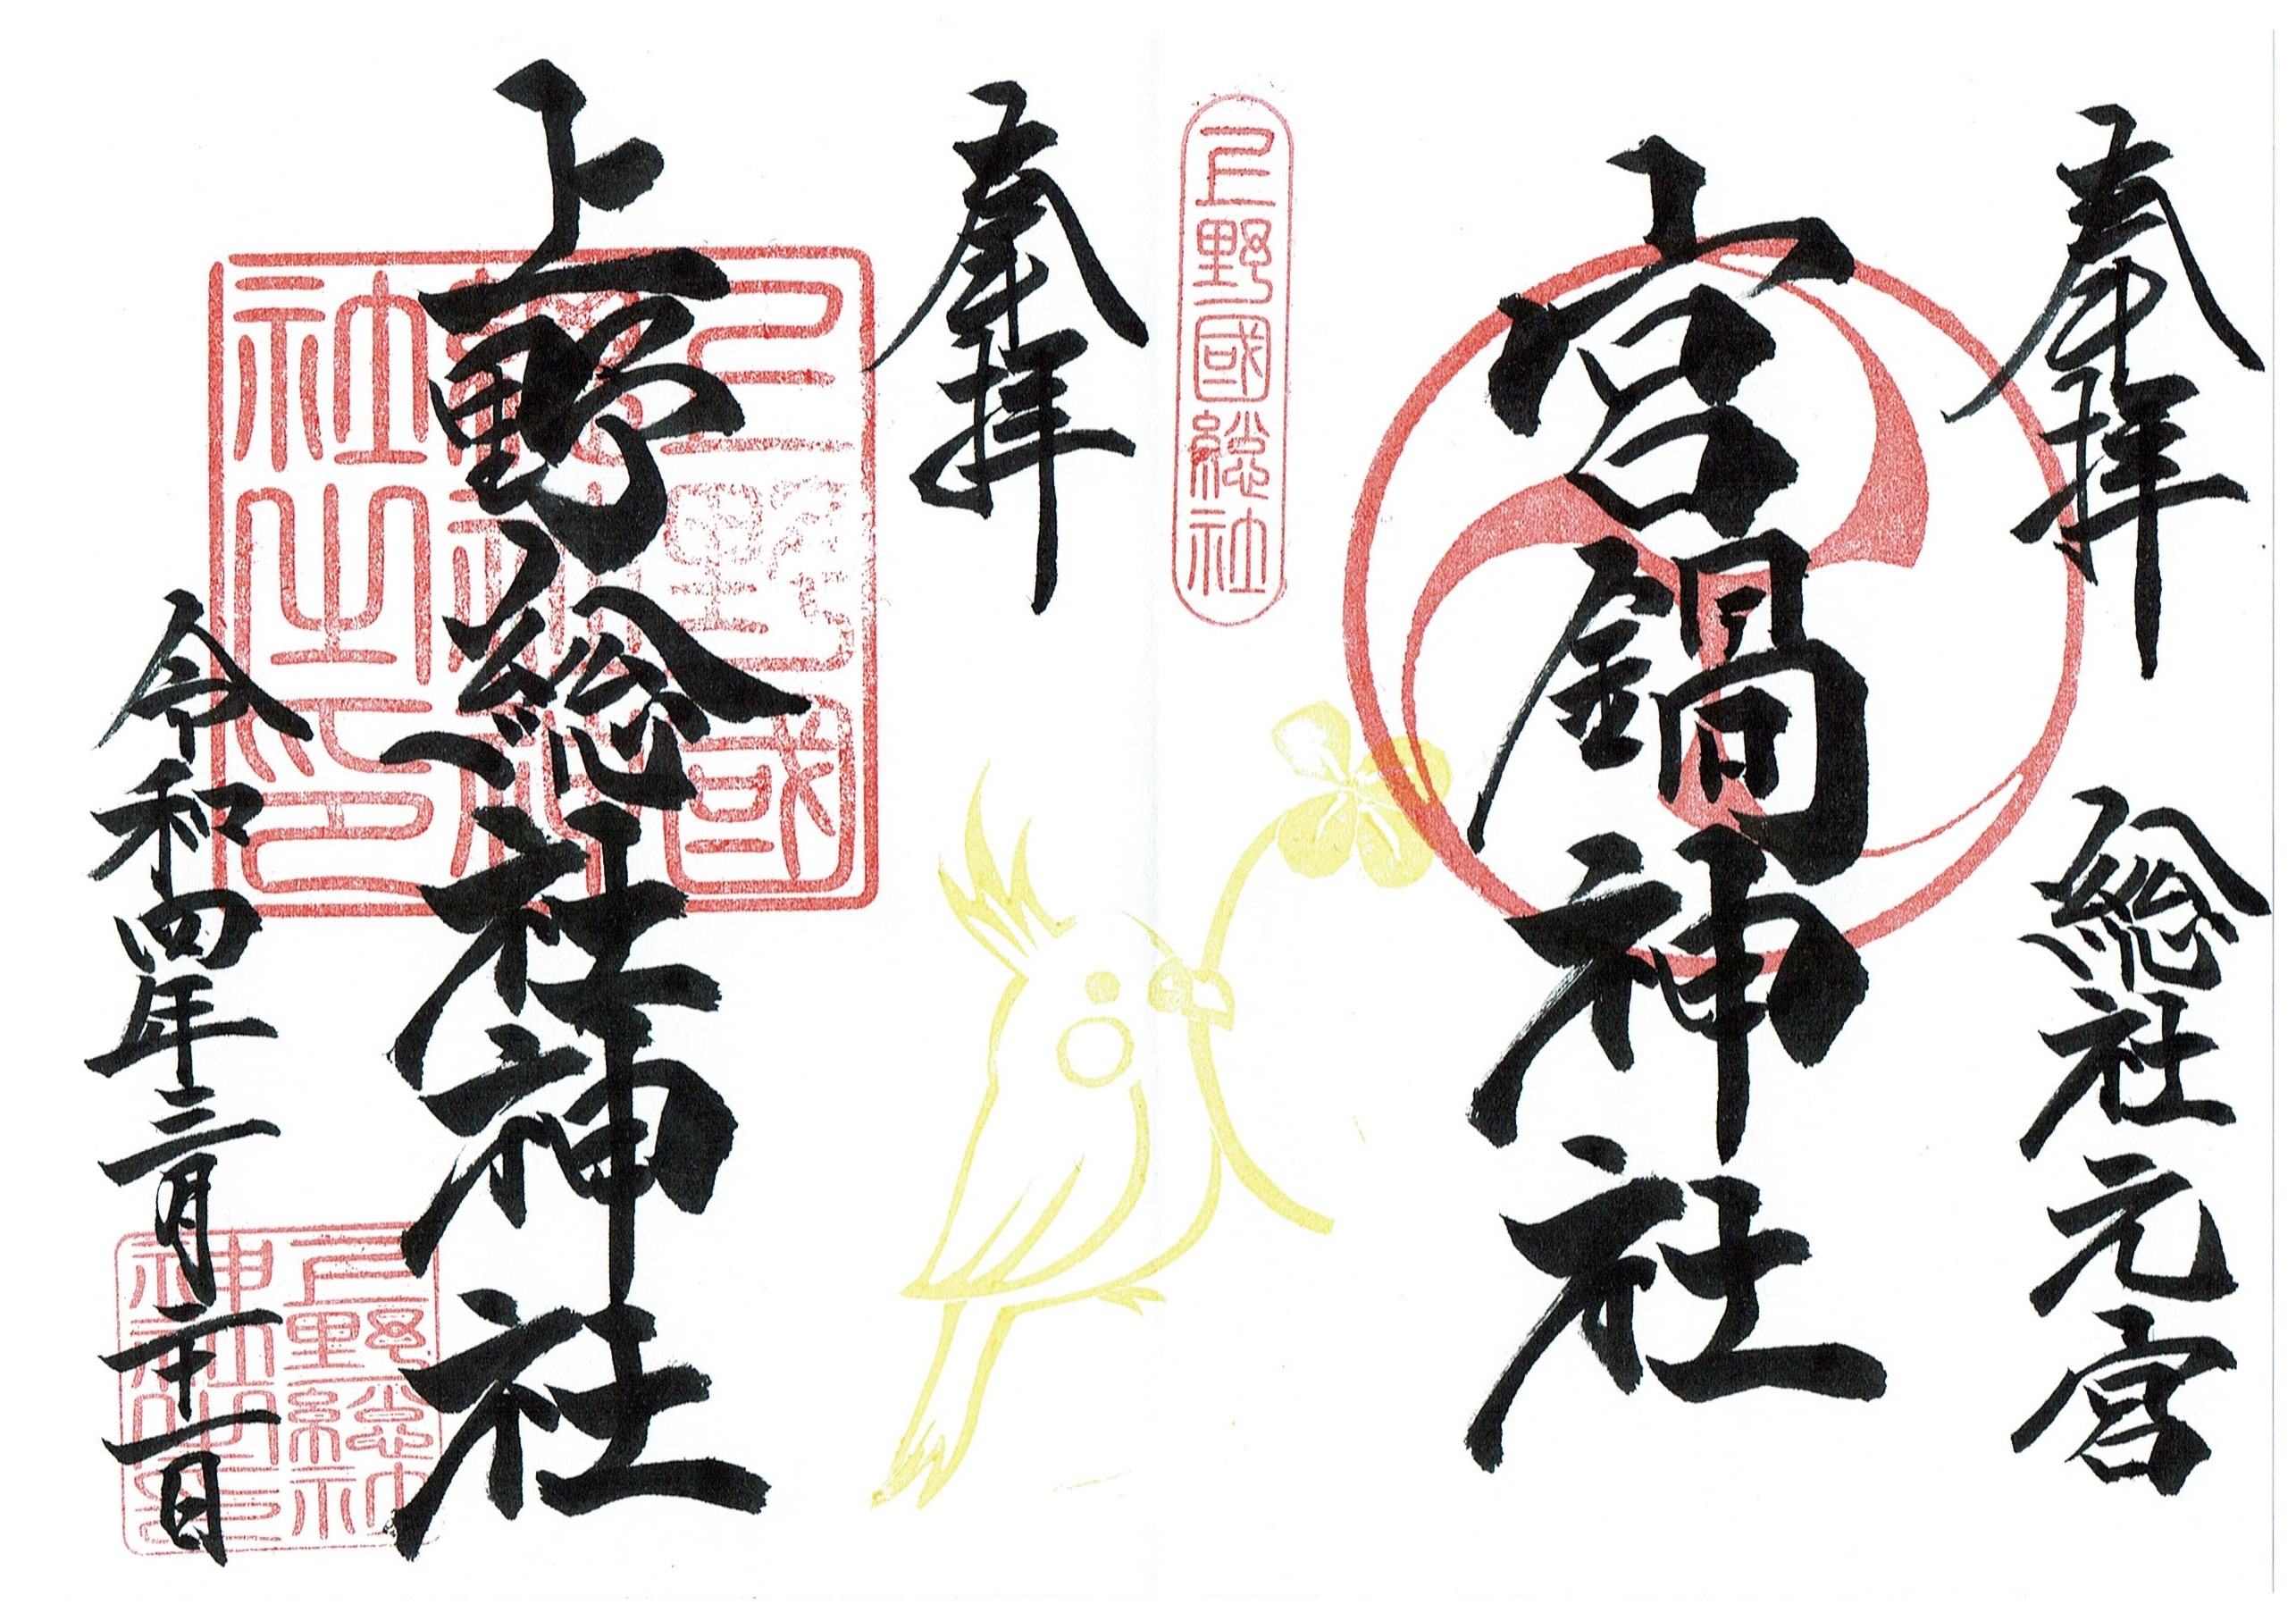 奉拝
総社元宮
宮鍋神社
上野國總社
奉拝
上野総社神社
上野國
社之印
令和四年三月二十一日
上野總社